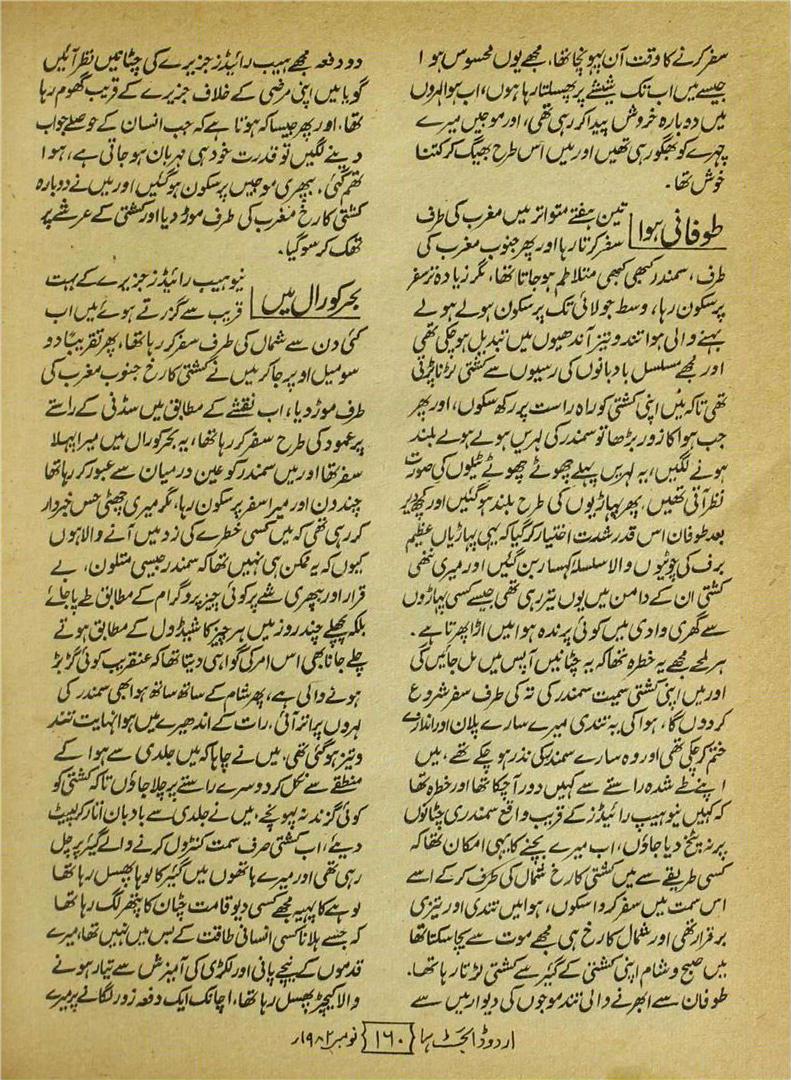 سفر کرنے کا وقت آن پہونچا تھا، مجھے یوں محسوس ہوا
جیسے میں اب تک شیشے پر پھسلتا رہا ہوں، اب ہوا لہروں
میں دوبارہ خروش پیدا کر رہی تھی، اور موجیں میرے
چہرے کو بھگو رہی تھیں اور میں اس طرح بھیگ کر کتنا
خوش تھا۔
طوفانی ہوا
تین ہفتے متواتر میں مغرب کی طرف
سفر کرتا رہا اور پھر جنوب مغرب کی
طرف، سمندر کبھی کبھی متلاطم ہو جاتا تھا، مگر زیادہ تر سفر
پرسکون رہا، وسط جولائی تک پرسکون ہولے ہولے
بہنے والی ہوا تند و تیز آندھیوں میں تبدیل ہو چکی تھی
اور مجھے مسلسل بادبانوں کی رسیوں سے کشتی لڑنا پڑتی
تھی تاکہ میں اپنی کشتی کو راہ راست پر رکھ سکوں، اور پھر
جب ہوا کا زور بڑھا تو سمندر کی لہریں ہولے ہولے بلند
ہونے لگیں، یہ لہریں پہلے چھوٹے چھوٹے ٹیلوں کی صورت
نظر آتی تھیں، پھر پہاڑیوں کی طرح بلند ہو گئیں اور کچھ دیر
بعد طوفان اس قدر شدت اختیار کر گیا کہ یہی پہاڑیاں عظیم
برف کی چوٹیوں والا سلسلہ کہسار بن گئیں اور میری ننھی
کشتی ان کے دامن میں یوں تیر رہی تھی جیسے کسی پہاڑوں
سے گھری وادی میں کوئی پرندہ ہوا میں اڑا پھرتا ہے۔
ہر لمحے مجھے یہ خطرہ تھا کہ یہ چٹانیں آپس میں مل جائیں گی
اور میں اپنی کشتی سمیت سمندر کی تہ کی طرف سفر شروع
کر دوں گا، ہوا کی یہ تندی میرے سارے پلان اور اندازے
ختم کر چکی تھی اور وہ سارے سمندر کی نذر ہو چکے تھے، میں
اپنے طے شدہ راستے سے کہیں دور آ چکا تھا اور خطرہ تھا
کہ کہیں نیو ہیب رائیڈز کے قریب واقع سمندری چٹانوں
پر نہ پٹخ دیا جاؤں، اب میرے بچنے کا یہی امکان تھا کہ
کسی طریقے سے میں کشتی کا رخ شمال کی طرف کر کے اسے
اس سمت میں سفر کروا سکوں، ہوا میں تندی اور تیزی
برقرار تھی اور شمال کا رخ ہی مجھے موت سے بچا سکتا تھا
میں صبح و شام اپنی کشتی کے گیئر سے کشتی لڑتا رہا تھا۔
طوفان سے ابھرنے والی تند موجوں کی دیوار میں سے
دو دفعہ مجھے ہیب رائیڈز جزیرے کی چٹانیں نظر آئیں
گویا میں اپنی مرضی کے خلاف جزیرے کے قریب گھوم رہا
تھا، اور پھر جیسا کہ ہوتا ہے کہ جب انسان کے حوصلے جواب
دینے لگیں تو قدرت خود ہی مہربان ہو جاتی ہے، ہوا
تھم گئی، بپھری موجیں پرسکون ہو گئیں اور میں نے دوبارہ
کشتی کا رخ مغرب کی طرف موڑ دیا اور کشتی کے عرشے پر
تھک کر سو گیا۔
بحر کورال میں
نیو ہیب رائیڈز جزیرے کے بہت
قریب سے گزرتے ہوئے میں اب
کئی دن سے شمال کی طرف سفر کر رہا تھا، پھر تقریباً دو
سو میل اوپر جا کر میں نے کشتی کا رخ جنوب مغرب کی
طرف موڑ دیا، اب نقشے کے مطابق میں سڈنی کے راستے
پر عمود کی طرح سفر کر رہا تھا، یہ بحر کورال میں میرا پہلا
سفر تھا اور میں سمندر کو عین درمیان سے عبور کر رہا تھا
چند دن اور میرا سفر پرسکون رہا، مگر میری چھٹی حس خبردار
کر رہی تھی کہ میں کسی خطرے کی زد میں آنے والا ہوں
کیوں کہ یہ ممکن ہی نہیں تھا کہ سمندر جیسی متلون، بے
قرار اور بپھری شے پر کوئی چیز پروگرام کے مطابق طے پا جائے
بلکہ پچھلے چند روز میں ہر چیز کا شیڈول کے مطابق ہوتے
چلے جانا بھی اس امر کی گواہی دیتا تھا کہ عنقریب کوئی گڑبڑ
ہونے والی ہے، پھر شام کے ساتھ ساتھ ہوا بھی سمندر کی
لہروں پر اتر آئی، رات کے اندھیرے میں ہوا نہایت تند
و تیز ہو گئی تھی، میں نے چاہا کہ میں جلدی سے ہوا کے
منطقے سے نکل کر دوسرے راستے پر چلا جاؤں تاکہ کشتی کو
کوئی گزند نہ پہونچے، میں نے جلدی سے بادبان اتار کر لپیٹ
دیئے، اب کشتی صرف سمت کنٹرول کرنے والے گیئر پر چل
رہی تھی اور میرے ہاتھوں میں گیئر کا لوہا پھسل رہا تھا
لوہے کا پہیہ مجھے کسی دیو قامت چٹان کا پتھر لگ رہا تھا
کہ جسے ہلانا کسی انسانی طاقت کے بس میں نہیں تھا، میرے
قدموں کے نیچے پانی اور لکڑی کی آمیزش سے تیار ہونے
والا کیچڑ پھسل رہا تھا، اچانک ایک دفعہ زور لگانے پر میرے
اردو ڈائجسٹ ہما ۱۶۰ نومبر ۱۹۸۲ار